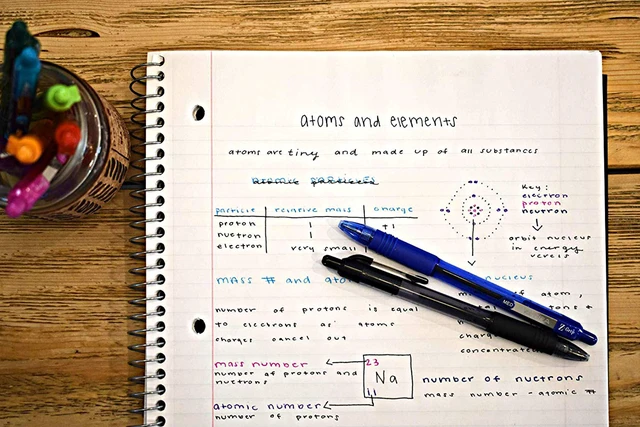 atoms and elements
atoms are tiny and made up of all substances
particle relative mass charge
proton 1 +1
neutron 1
electron very small
Key:
electron
proton
neutron
orbit nucleus
in energy
levels
mass # and
nucleus
number of protons is equal
to electrons as atoms
charges cancel out
of atom,
mass number
number of protons and
neutrons
23
Na
11
atomic number
number of protons
number of neutrons
mass number - atomic #